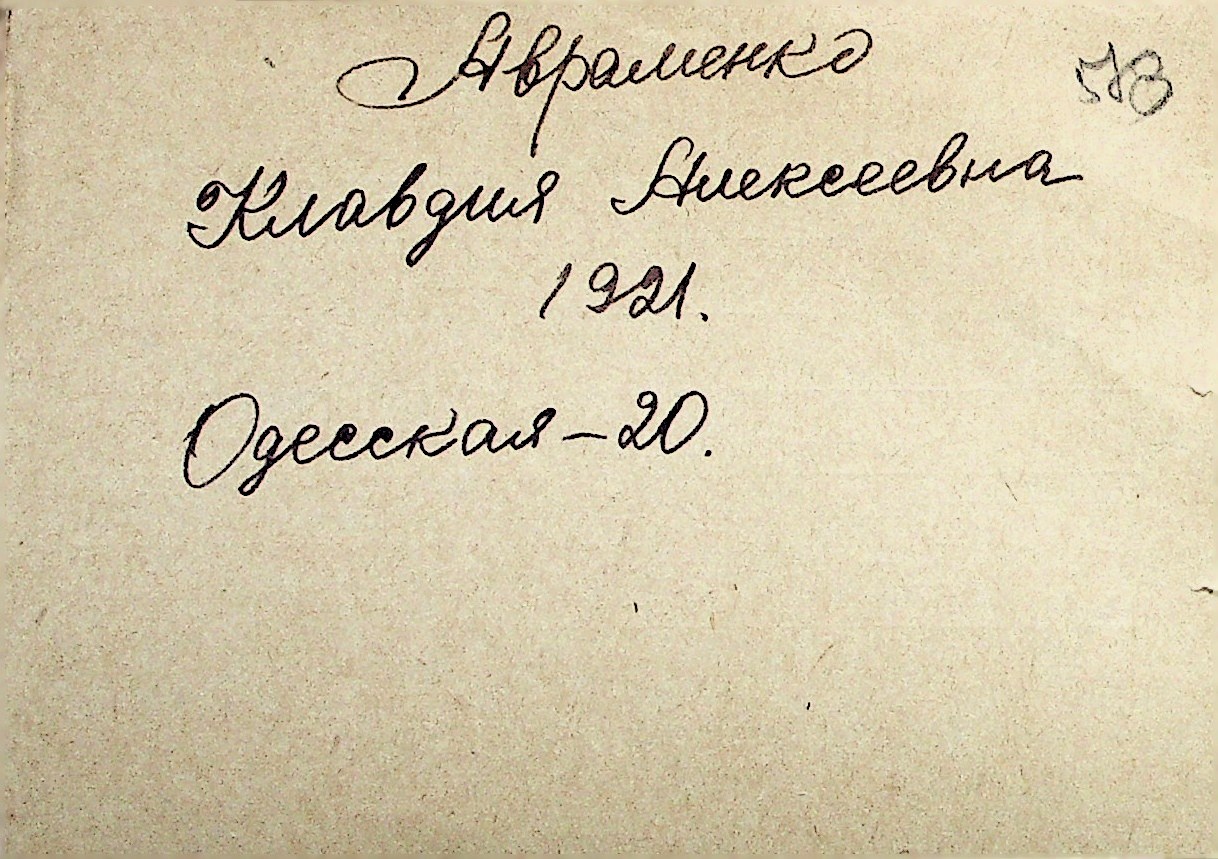 Авраменко
Клавдия Алексеевна
1921.
Одесская – 20.